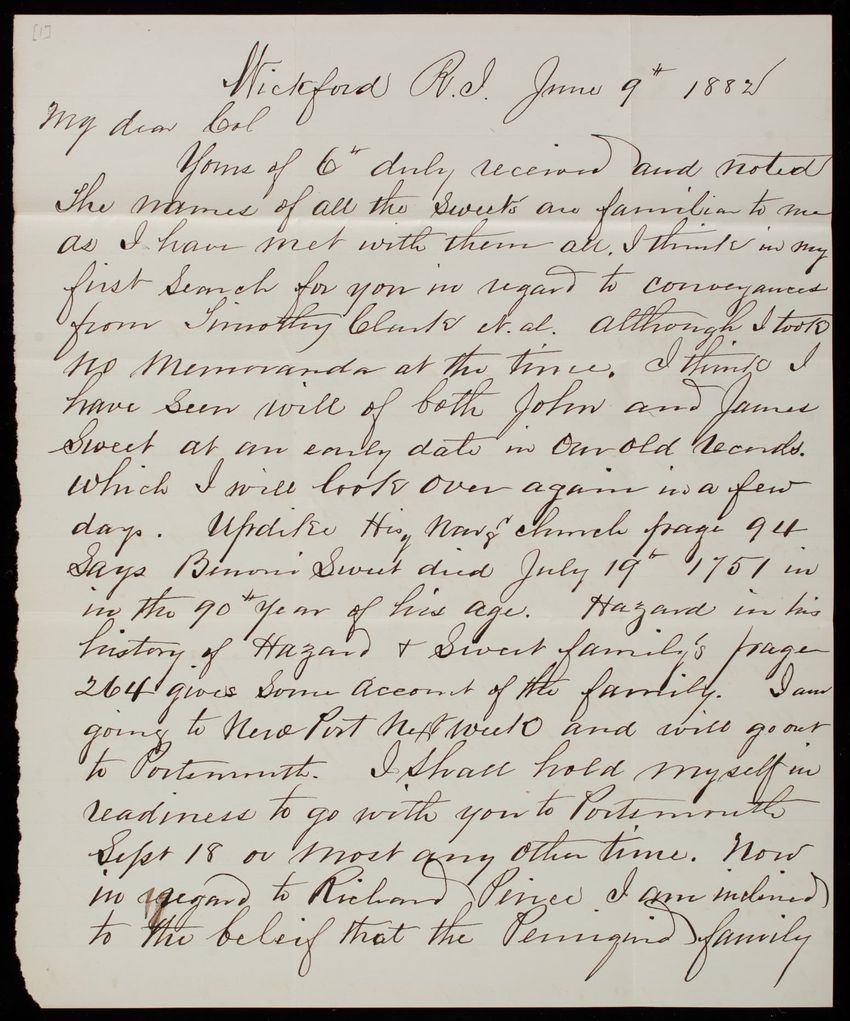 [1]
Wickford R.I. June 9th 1882
My dear Col
Yours of 6th duly received and noted
The names of all the Sweets are familiar to me
as I have met with them all. I think in my
first Search for you in regard to conveyances
from Timothy Clark et.al. although I took
no Memoranda at the time. I think I
have Seen will of both John and James
Sweet at an early date in Our old records.
which I will look over again in a few
days. Updike Hisy Narg't church page 94
Says Benoni Sweet died July 19th 1751 in
in the 90th Year of his age. Hazard in his
history of Hazard & Sweet family's page
264 gives Some account of the family. I am
going to New Port Next week and will go out
to Portsmouth. I Shall hold myself in
readiness to go with you to Portsmouth
Sept 18 or most any other time. Now
in regard to Richard Peirce I am inclined
to the beleif that the family